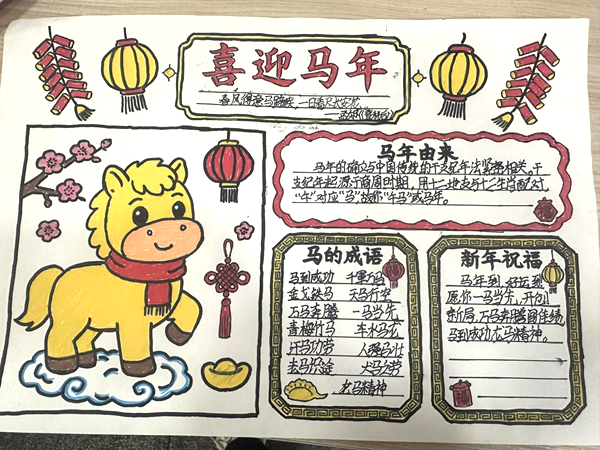 喜迎马年
春风得意马蹄疾，一日看尽长安花
马年由来
马年的确立与中国传统的干支纪年法紧密相关。干
支纪年起源于商周时期，用十二地支与十二生肖配对，
"午"对应"马"，故称"午马"或马年。
马的成语
马到成功 千军万马
金戈铁马 天马行空
万马奔腾 一马当先
青梅竹马 车水马龙
汗马功劳 人强马壮
犬马之劳
龙马精神
新年祝福
马年到 好运到
愿你一马当先，开创
新局，万马奔腾闹佳绩
马到成功龙马精神。
福
福
福